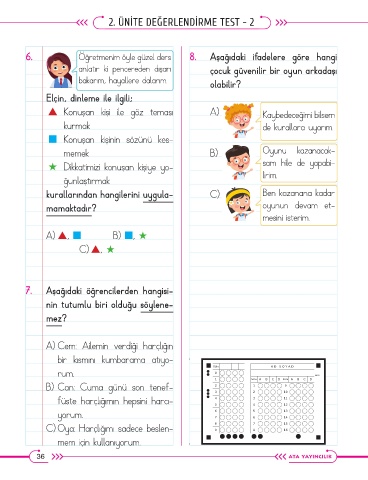 2. ÜNİTE DEĞERLENDİRME TEST - 2
6.
Öğretmenim öyle güzel ders
anlatır ki pencereden dışarı
bakarım, hayallere dalarım.
Elçin, dinleme ile ilgili;
▲ Konuşan kişi ile göz teması
kurmak
■ Konuşan kişinin sözünü kes-
memek
★ Dikkatimizi konuşan kişiye yo-
ğunlaştırmak
kurallarından hangilerini uygula-
mamaktadır?
A) ▲, ■ B) ■, ★
C) ▲, ★
7. Aşağıdaki öğrencilerden hangisi-
nin tutumlu biri olduğu söylene-
mez?
A) Cem: Ailemin verdiği harçlığın
bir kısmını kumbarama atıyo-
rum.
B) Can: Cuma günü son tenef-
füste harçlığımın hepsini harcı-
yorum.
C) Oya: Harçlığımı sadece beslen-
mem için kullanıyorum.
8. Aşağıdaki ifadelere göre hangi
çocuk güvenilir bir oyun arkadaşı
olabilir?
A) Kaybedeceğimi bilsem
de kurallara uyarım.
B) Oyunu kazanacak-
sam hile de yapabi-
lirim.
C) Ben kazanana kadar
oyunun devam et-
mesini isterim.
AD SOYAD
36
ATA YAYINCILIK